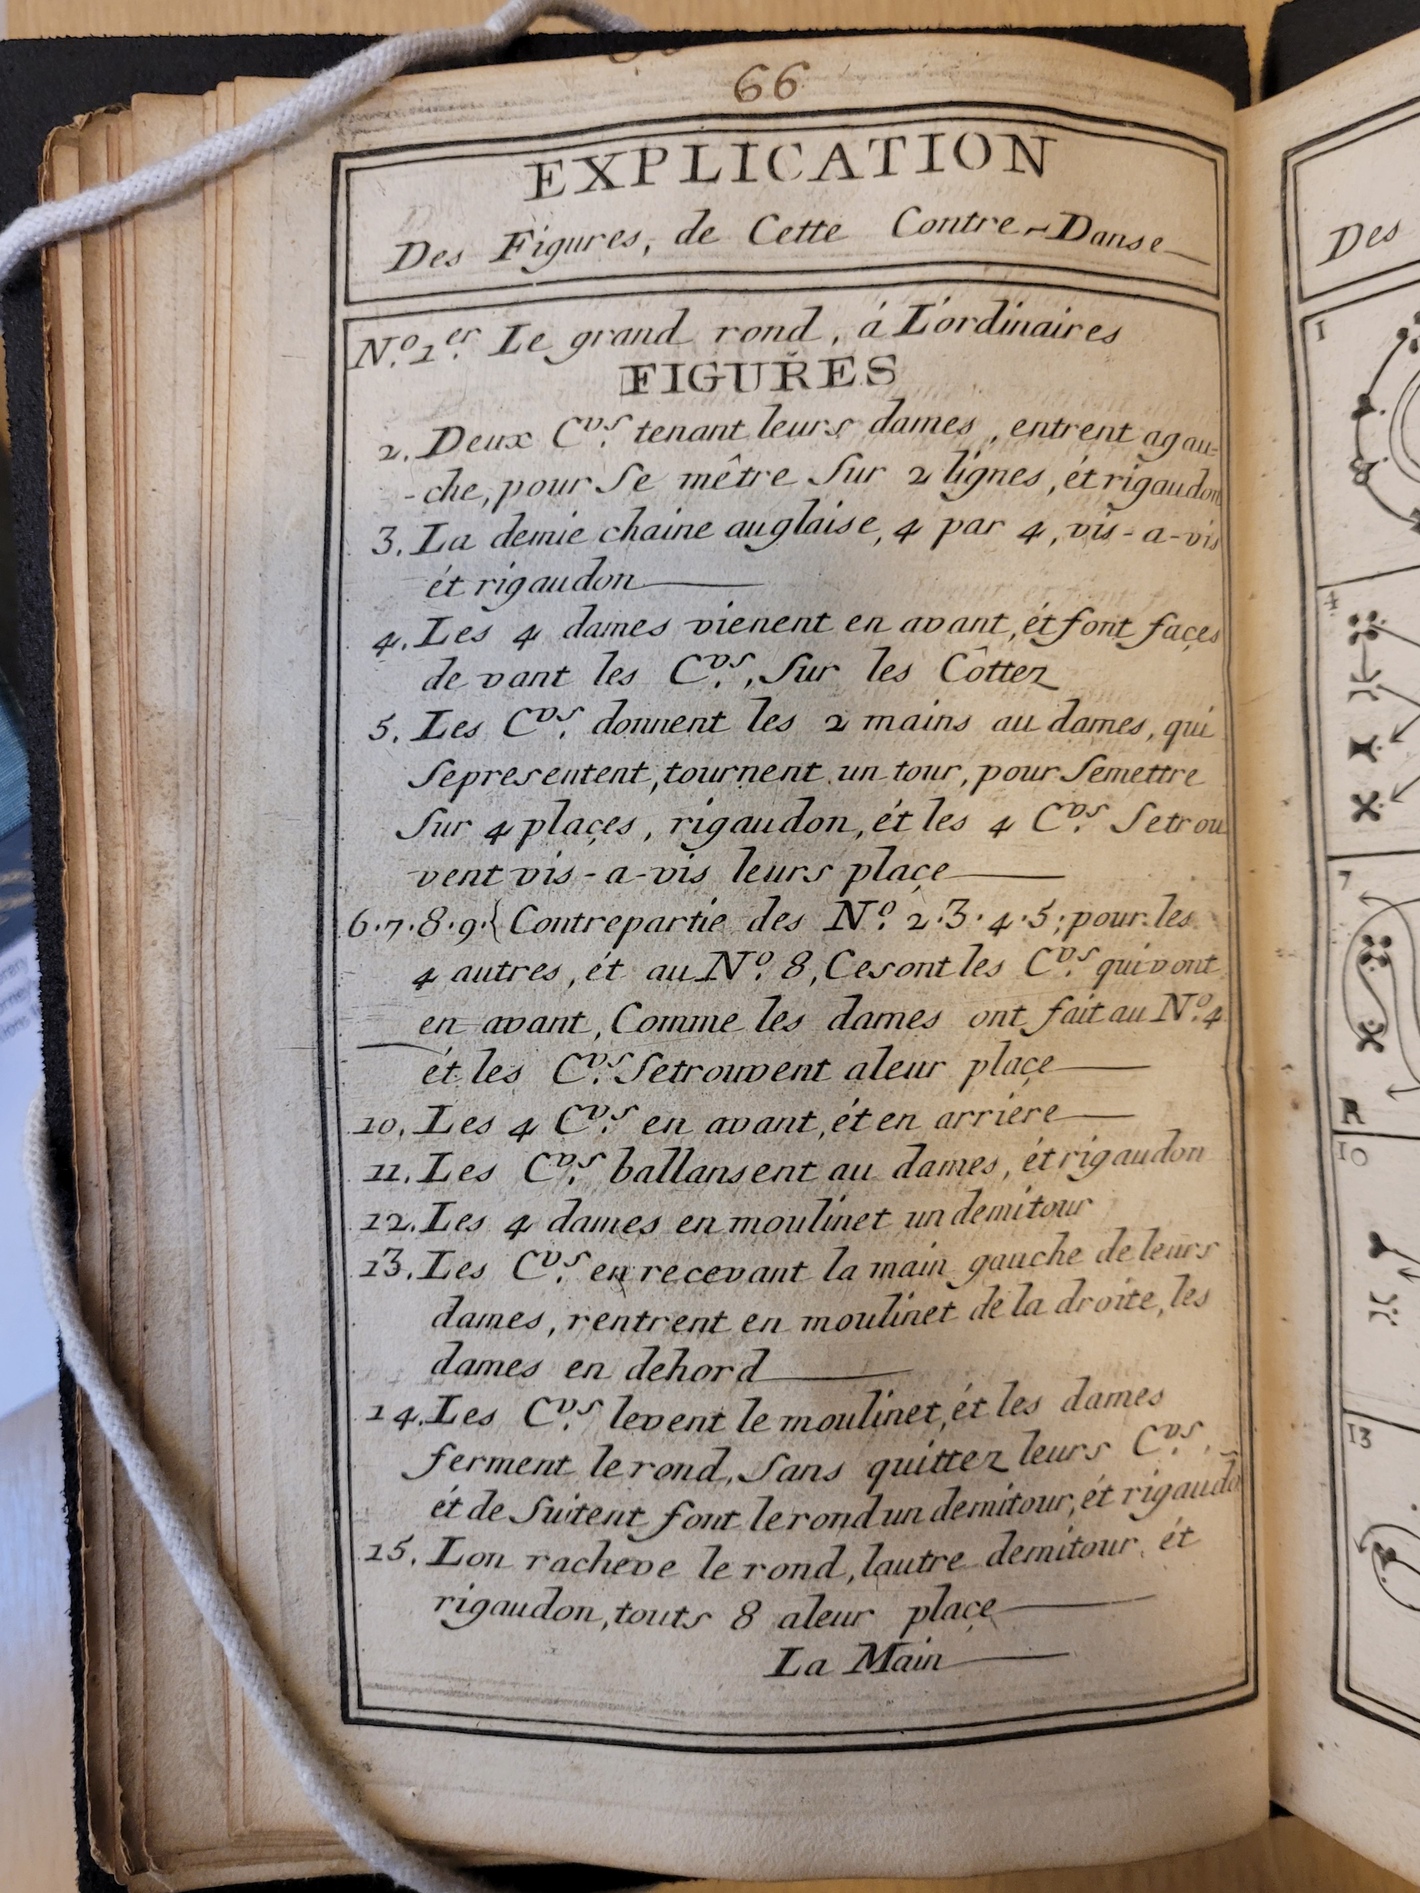 66
EXPLICATION
Des Figures, de Cette Contre-Danse
N.º 1.er Le grand rond, á L'ordinaires
FIGURES
2. Deux C.vs tenant leurs dames, entrent agau-
-che, pour Se mêtre Sur 2 lignes, ét rigaudon
3. La demie chaine auglaise, 4 par 4, vis-a-vis
ét rigaudon
4. Les 4 dames vienent en avant, ét font façes
de vant les C.vs, Sur les Côttez
5. Les C.vs donnent les 2 mains au dames, qui
Sepresentent, tournent un tour, pour Semettre
Sur 4 plaçes, rigaudon, ét les 4 C.vs Setrou
vent vis-a-vis leurs plaçe
6.7.8.9.{ Contrepartie des N.º 2.3.4.5; pour les
4 autres, ét au N.º 8, Cesont les C.vs quivont
en avant, Comme les dames ont fait au N.º 4
ét les C.vs Setrouvent aleur plaçe
10. Les 4 C.vs en avant, ét en arriere
11. Les C.vs ballansent au dames, ét rigaudon
12. Les 4 dames en moulinet un demitour
13. Les C.vs en recevant la main gauche de leurs
dames, rentrent en moulinet de la droite, les
dames en dehord
14. Les C.vs levent le moulinet, ét les dames
ferment le rond, Sans quittez leurs C.vs,
ét de Suitent font le rond un demitour, ét rigaudõ
15. Lon racheve le rond, lautre demitour, ét
rigaudon, touts 8 aleur plaçe
La Main
Des
1
4
7
R
10
13